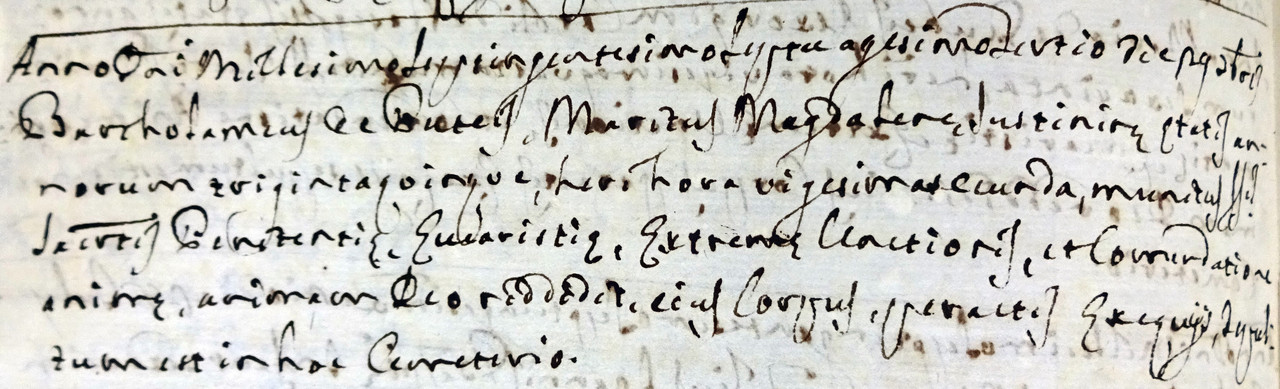 Anno Dni Millesimo septingentesimo septuagesimo tertio Die 9 9bris
Bartholameus De Puteis, Maritus Magdalenę, Iustinirę ętatis an-
norum trigintaquinque, heri hora vigesimasecunda, munitus SSis
Sacrtis Penitentię, Eucaristię, Extremę Unctionis, et Comendatione
animę, animam Deo reddidit, eius Corpus, peractis Exequijs, sepul-
tum est in hoc Cemeterio.